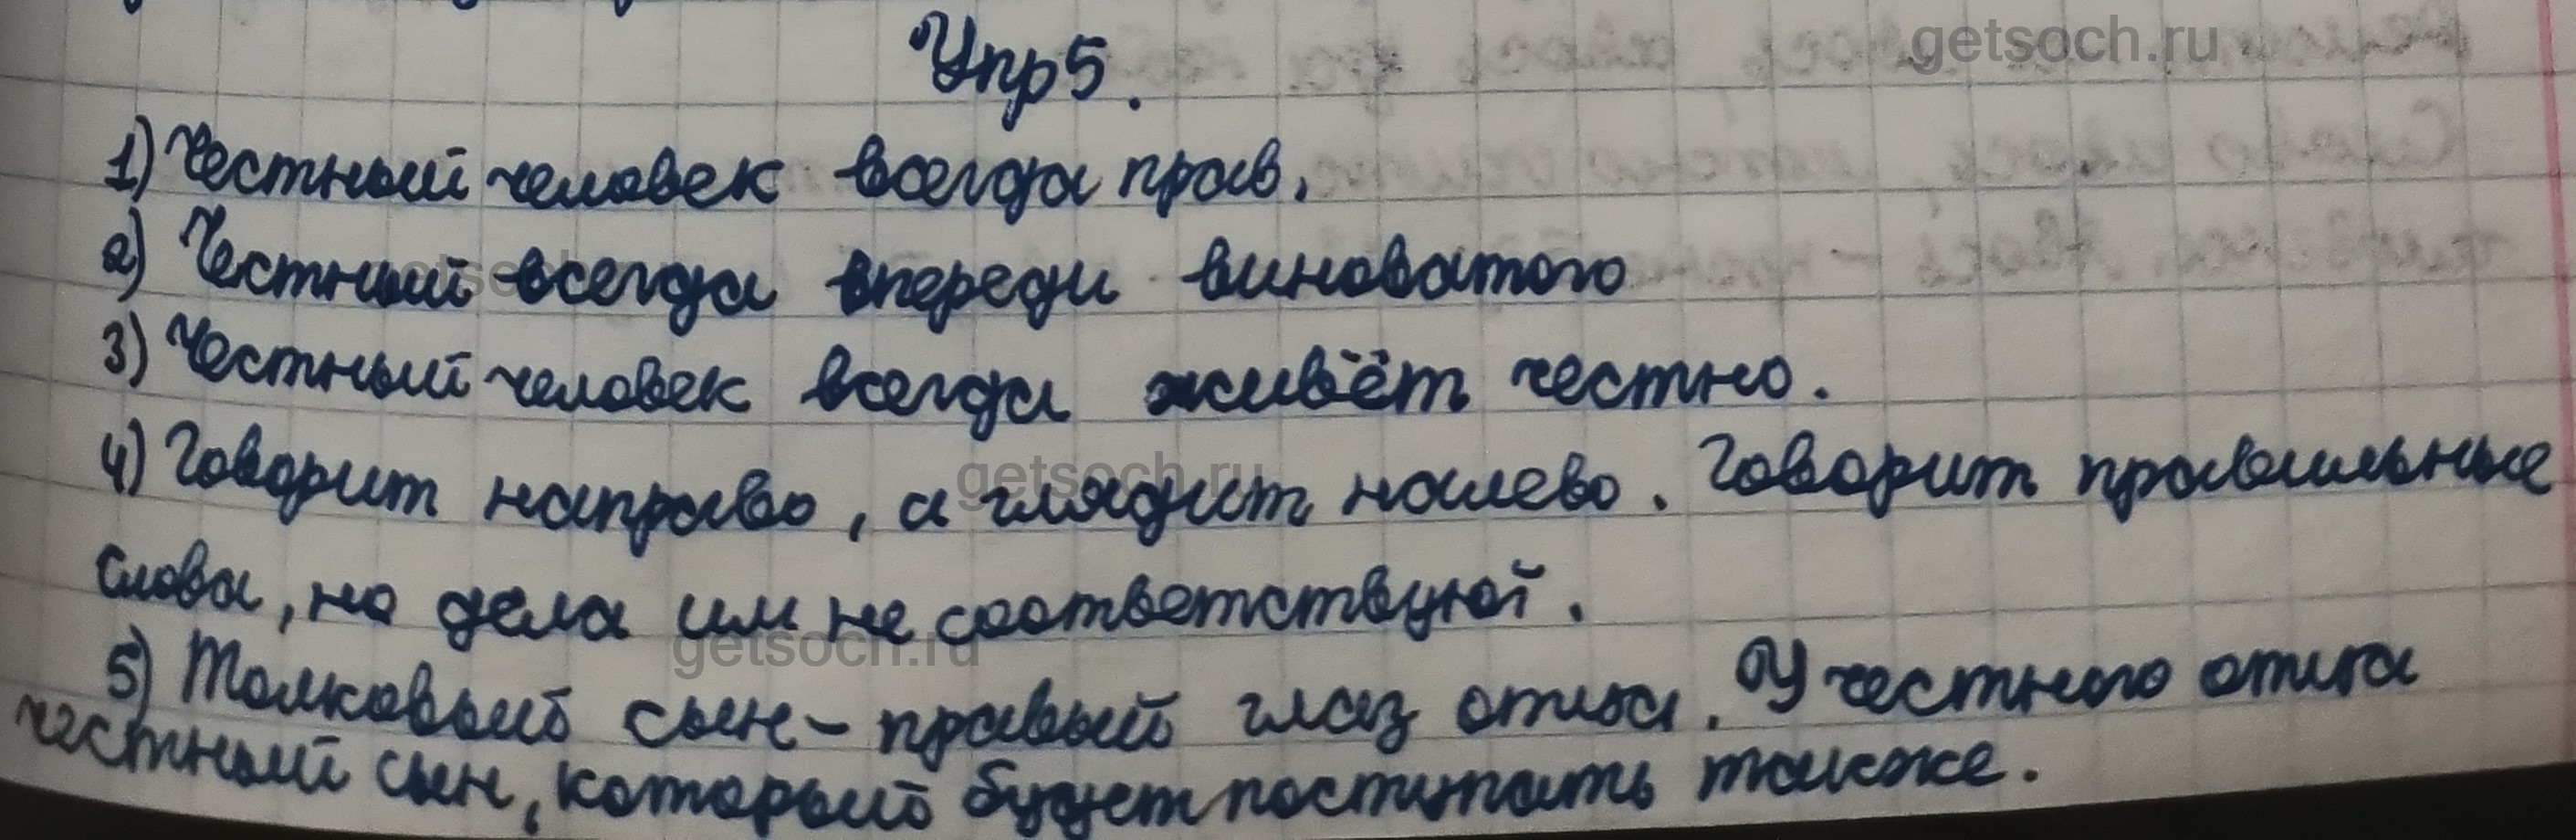 Упр 5.
1) Честный человек всегда прав.
2) Честный всегда впереди виноватого
3) Честный человек всегда живёт честно.
4) Говорит направо, а глядит налево. Говорит правильные
слова, но дела им не соответствуют.
5) Толковый сын - правый глаз отца. У честного отца
честный сын, который будет поступать также.
getsoch.ru
getsoch.ru
getsoch.ru
getsoch.ru